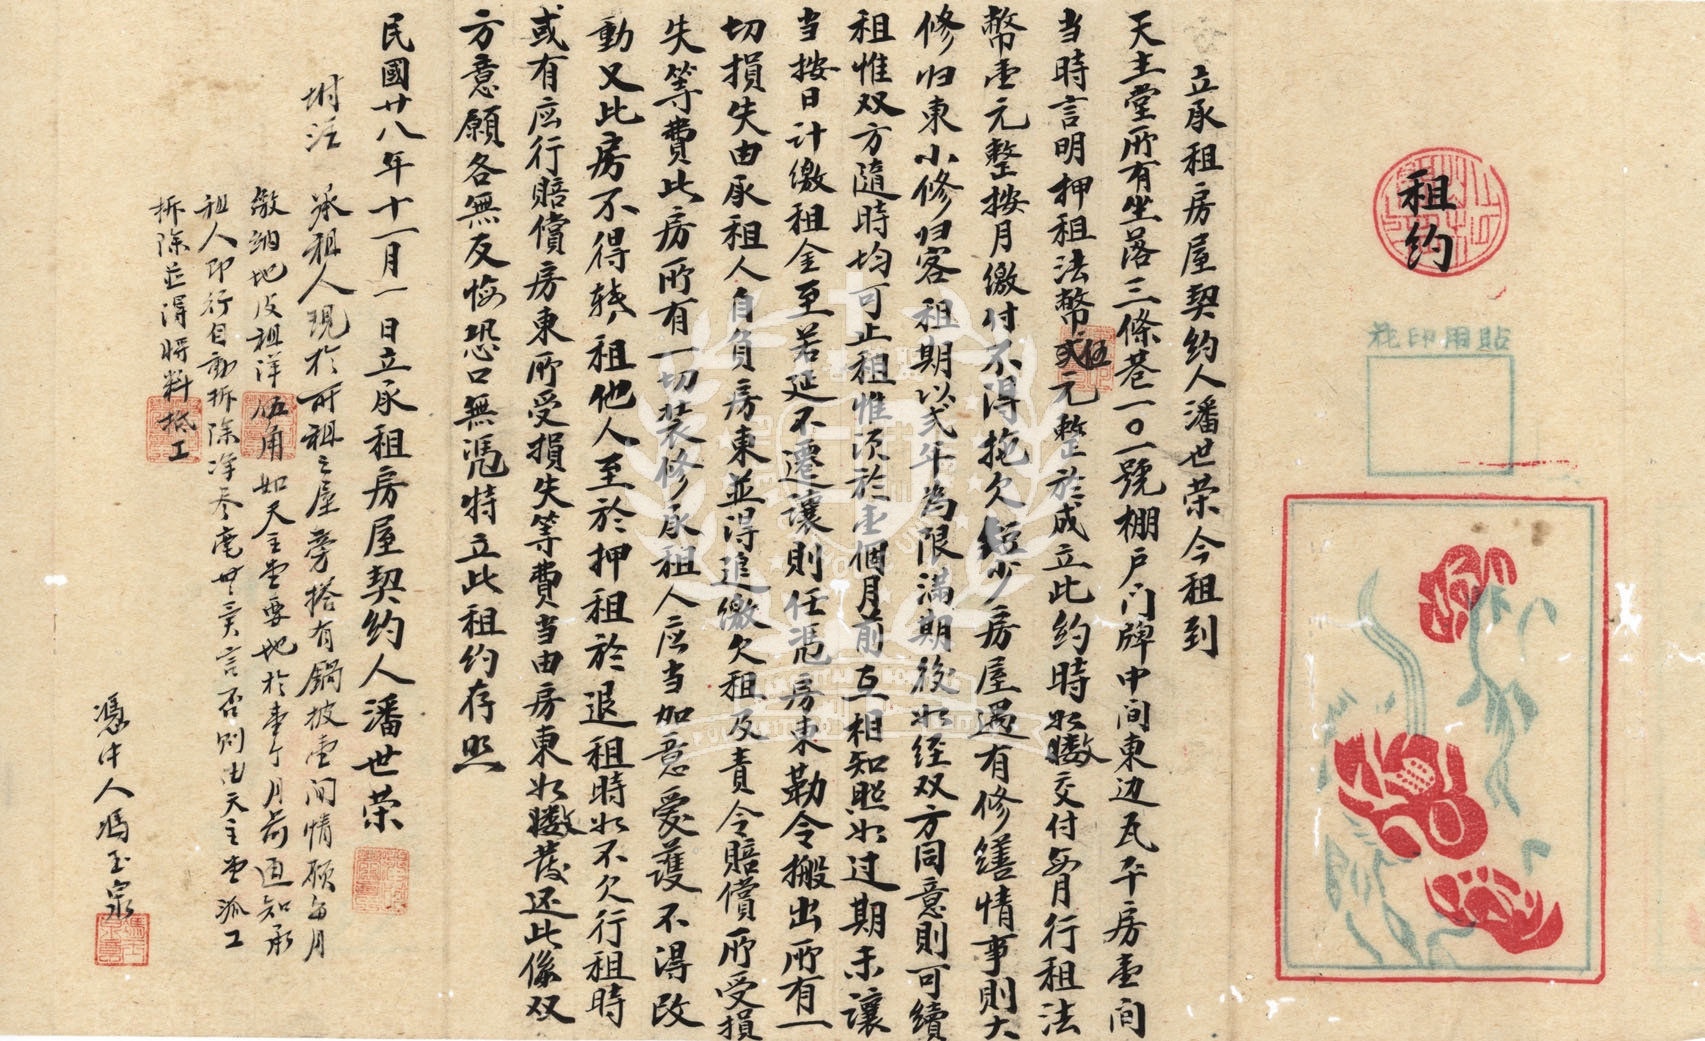 租约
貼用印花
立承租房屋契约人潘世荣今租到
天主堂所有坐落三條巷一〇一號棚戶门牌中间東边瓦平房壹间
当時言明押租法幣伍元整於成立此约時如數交付每月行租法
幣壹元整按月缴付不得拖欠短少房屋遇有修繕情事則大
修归東小修归客租期以弍年為限满期後如经双方同意則可續
租惟双方隨時均可止租惟须於壹個月前互相知照如过期未讓
当按日计缴租金至若延不遷讓則任凴房東勒令搬出所有一
切損失由承租人自負房東並得追缴欠租及責令賠償所受損
失等費此房所有一切装修承租人应当加意愛護不得改
動又此房不得转租他人至於押租於退租時如不欠行租時
或有应行賠償房東所受損失等費当由房東如數发还此係双
方意願各無反悔恐口無凴特立此租约存照
民國廿八年十一月一日立承租房屋契约人潘世荣
附注 承租人現於所租之屋旁搭有鍋披壹间情願每月
缴纳地皮租洋伍角如天主堂要地於壹个月前通知承
租人即行自動拆除净尽毫無異言否则由天主堂派工
拆除並得将料抵工
憑中人馮玉泉